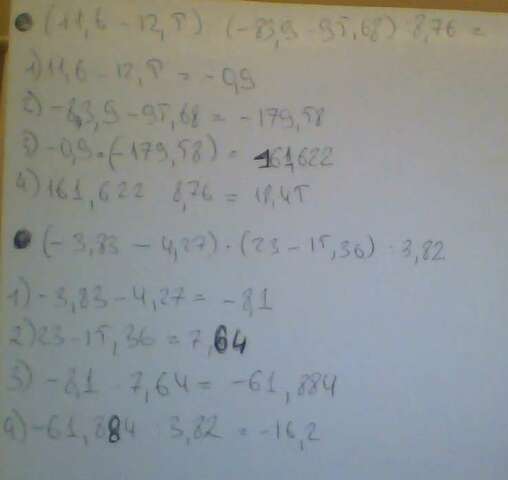 (11,6 - 12,5) (-83,9 - 95,68) : 8,76 =
1) 11,6 - 12,5 = -0,9
2) -83,9 - 95,68 = -179,58
3) -0,9 · (-179,58) = 161,622
4) 161,622 : 8,76 = 18,45
(-3,83 - 4,27) · (23 - 15,36) : 3,82
1) -3,83 - 4,27 = -8,1
2) 23 - 15,36 = 7,64
3) -8,1 · 7,64 = -61,884
4) -61,884 : 3,82 = -16,2